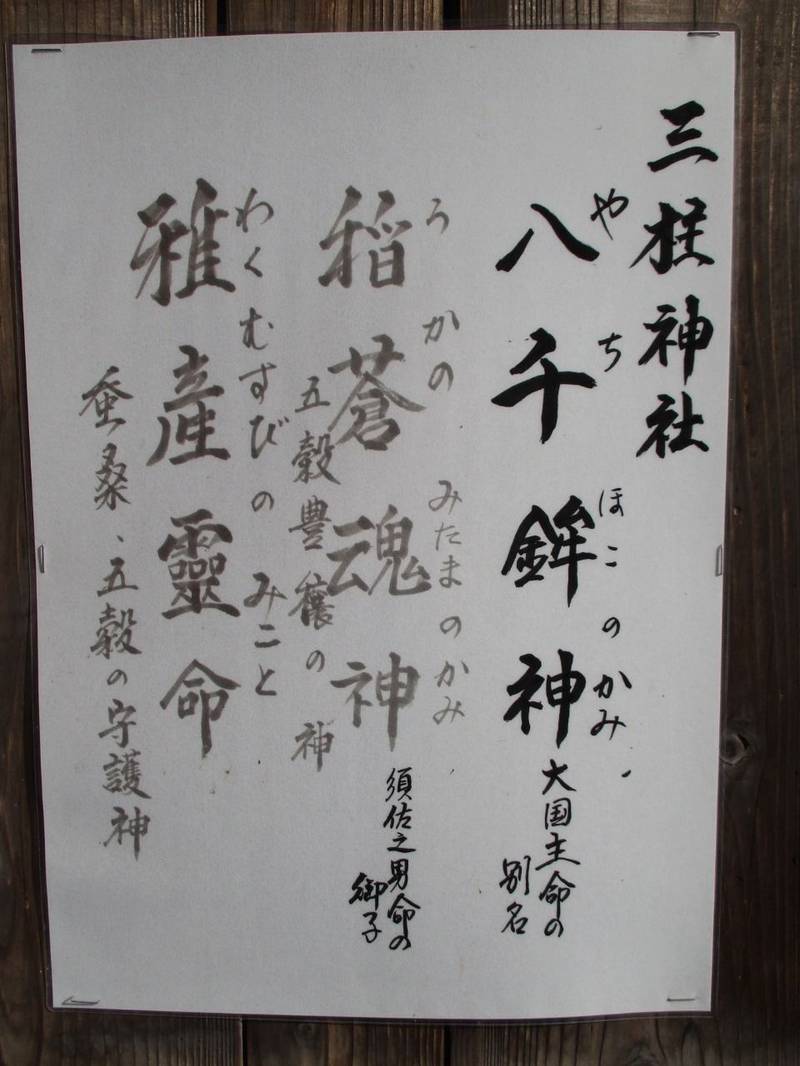 三柱神社
やちほこのかみ
八千鉾神
大国主命の
別名
うかのみたまのかみ
稲蒼魂神
須佐之男命の
御子
五穀豊穣の神
わくむすびのみこと
雅産靈命
蚕桑、五穀の守護神